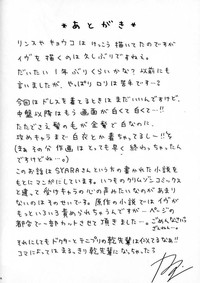 ＊あとがき＊
リンスやキョウコはけっこう描いてたのですが
イヴを描くのは久しぶりですねえ。
だいたい1年ぶりくらいかな？以前にも
言いましたが、やっぱりロリは苦手です…
今回はドレスを着てるときはまだいいんですけど、
中盤以降はもう画面が白くて白くて…!!
たださえ髪の毛が金髪で白なのに、
攻めキャラまで白衣とか着ちゃてまし…!!
（まぁその分作画はとっても早く終わっちゃたん
ですけどねー。）
このお話はSYARAさんという方の書かれた小説を
もとにマンガにしています。いつものクリムゾンコミックス
と違って受けキャラの心の声みたいなのがあまり
ないのはそのせいです。原作の小説ではイヴが
もっといろいろ責められちゃうんですが…ページの
都合で一部カットさせて頂きました…。ごめんなさい
それにしてもドクターとテニプリの乾先輩は
コマによってはまるっきり乾先輩になっちゃたり